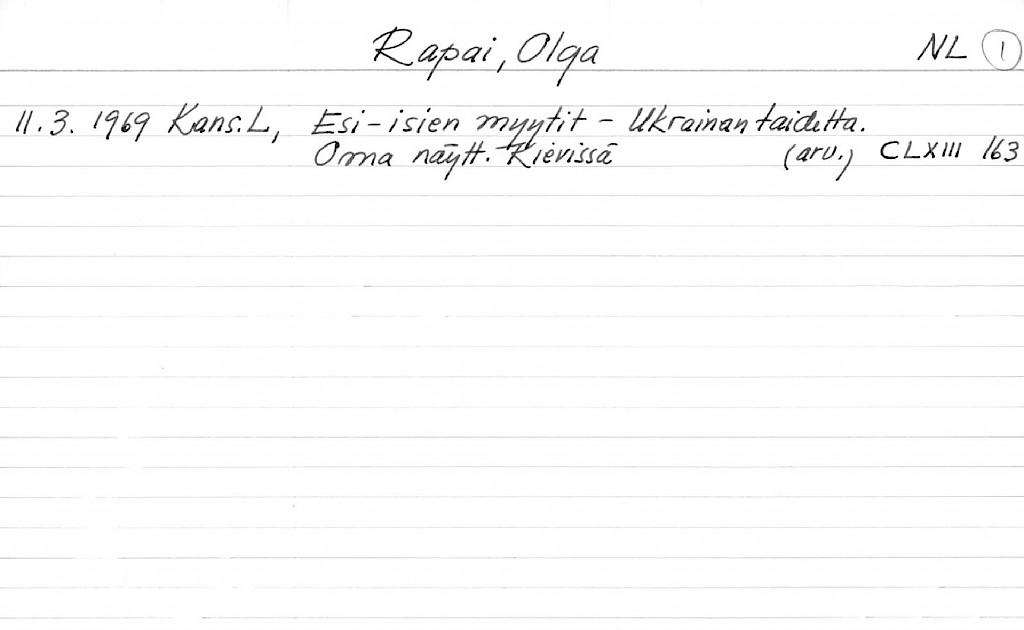 Rapai, Olga NL 1
11.3. 1969 Kans.L, Esi-isien myytit - Ukrainan taidetta.
Oma näytt. Kievissä (arv.) CLXIII 163